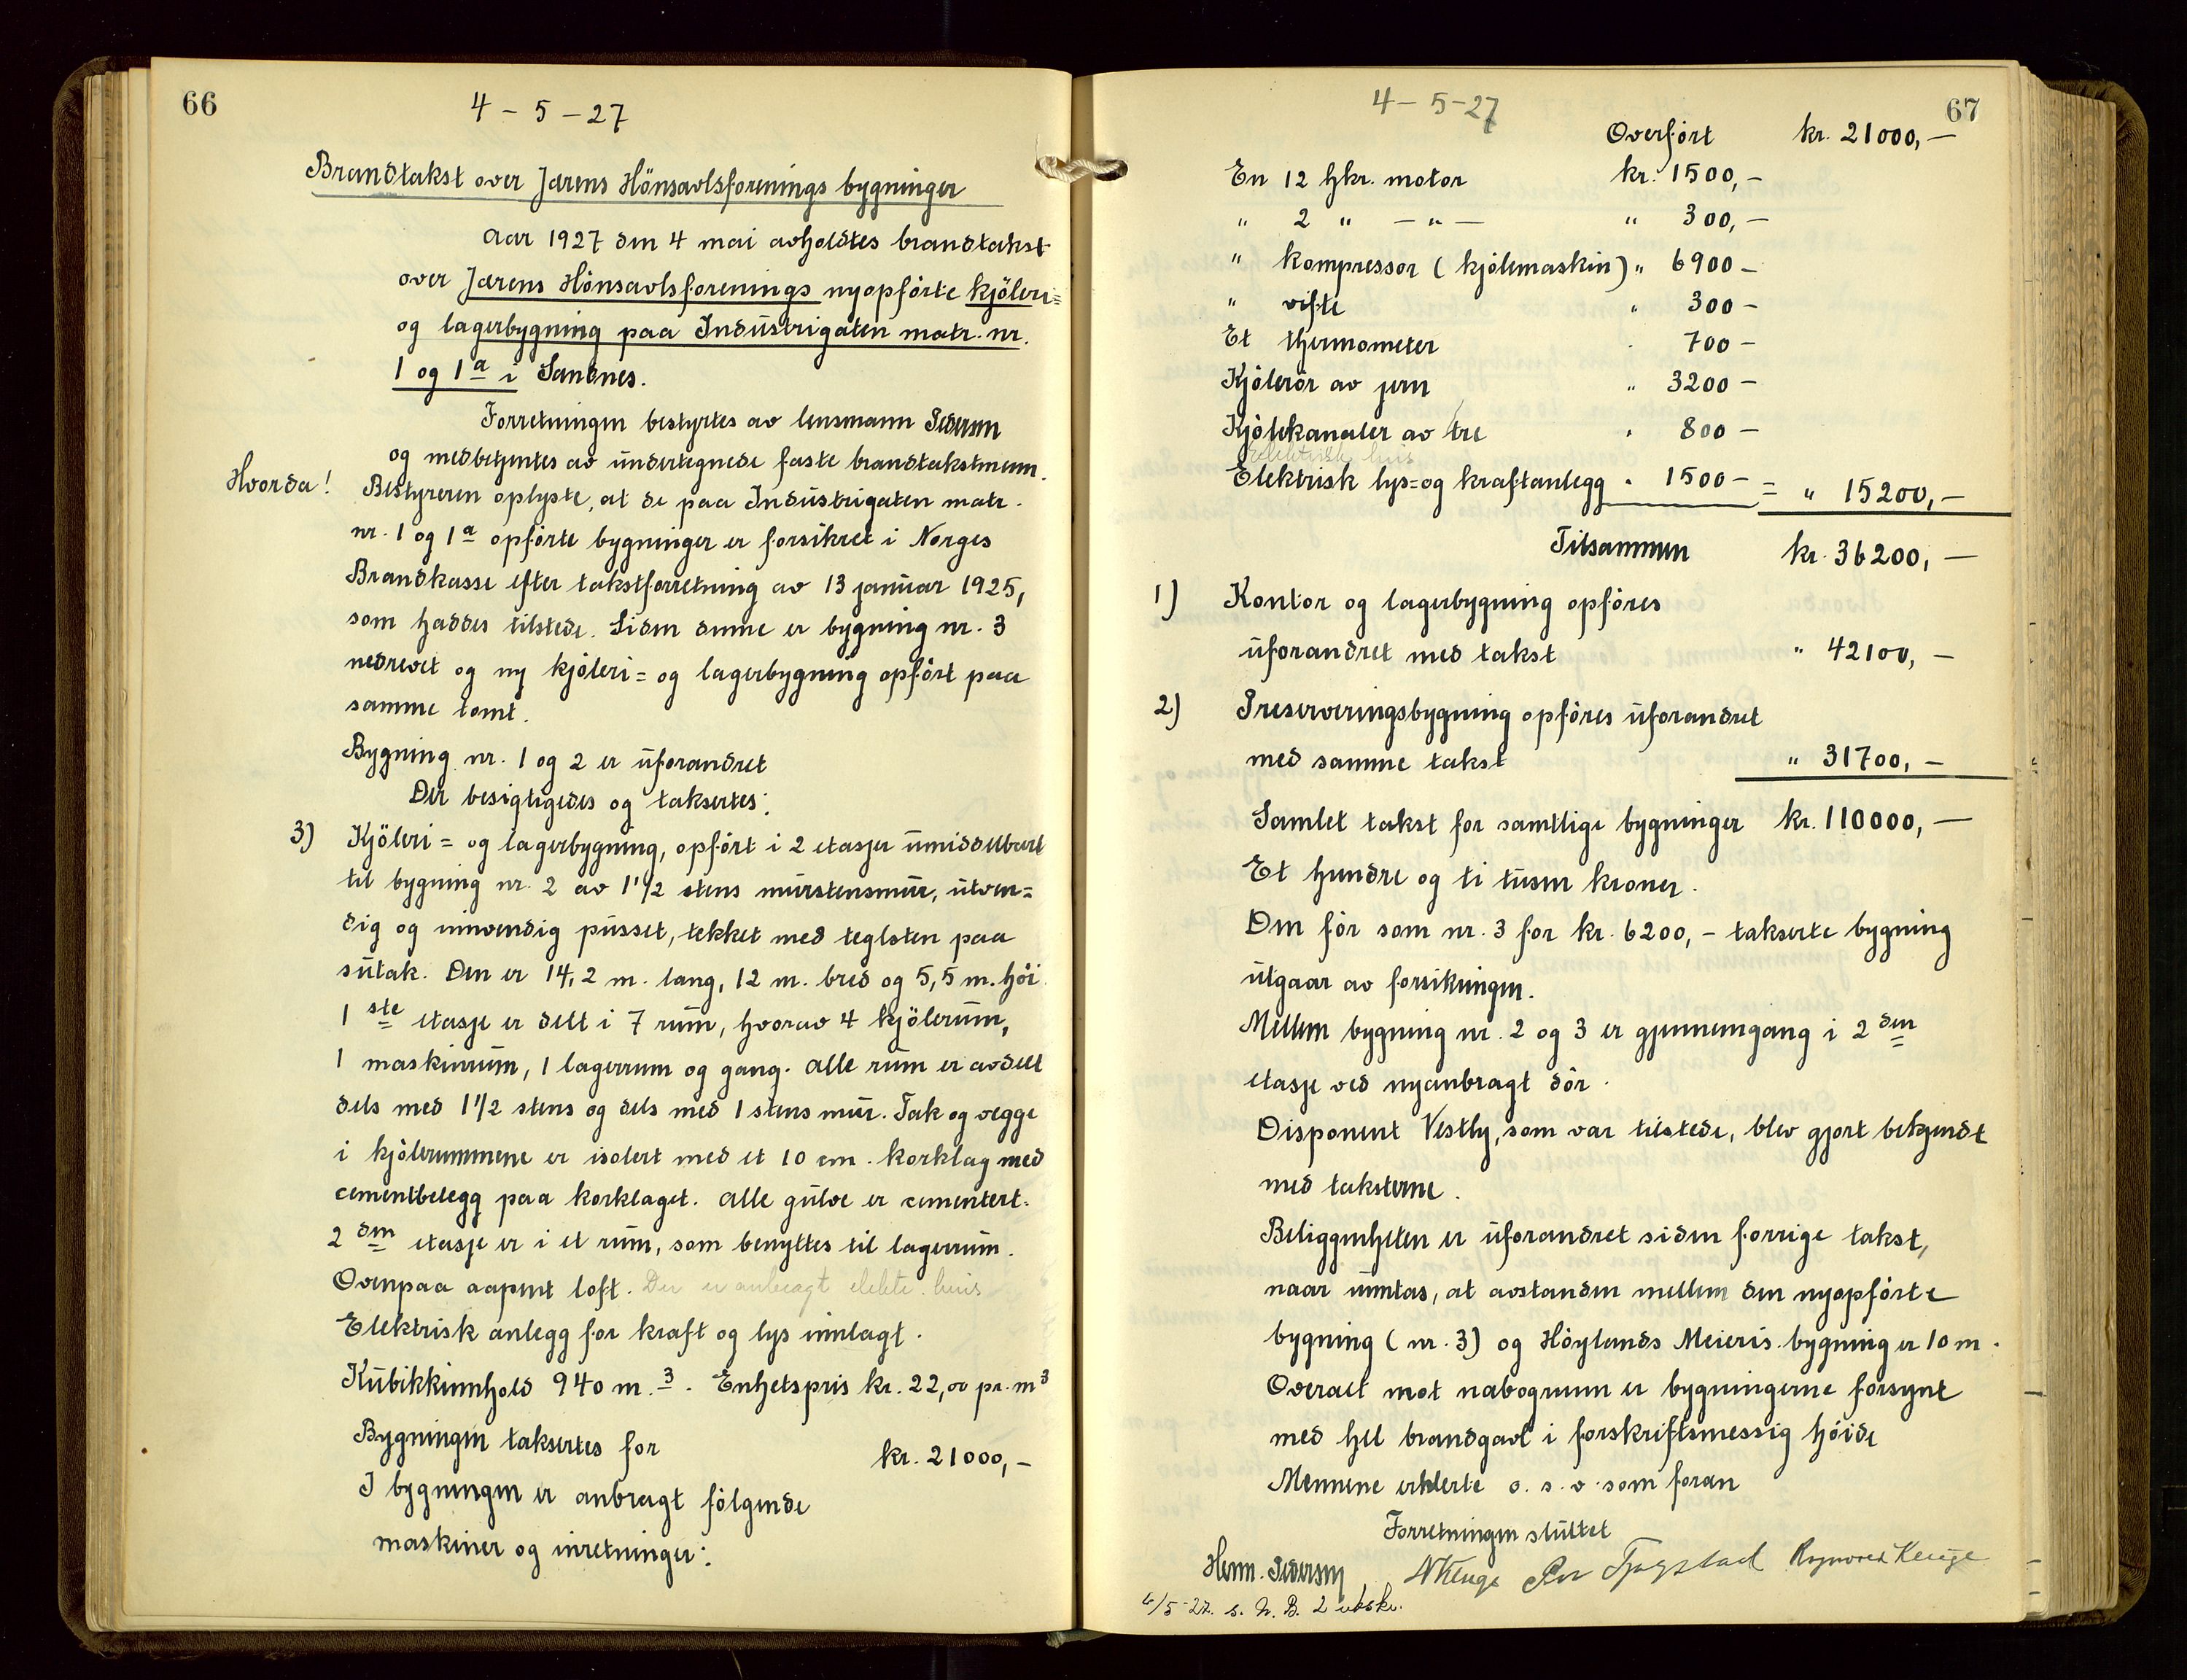 66
4 - 5 - 27
Brandtakst over Jærens Hönsavlsforenings bygninger
Aar 1927 den 4 mai avholdtes brandtakst
over Jærens Hönsavlsforenings nyopförte kjöleri=
og lagerbygning paa Industrigaten matr. nr.
1 og 1a i Sandnes.
Forretningen bestyrtes av lensmann Pedersen
og medbetjentes av undertegnede faste brandtakstmenn.
Hvorda! Bestyreren oplyste, at de paa Industrigaten matr.
nr. 1 og 1a opförte bygninger er forsikret i Norges
Brandkasse efter takstforretning av 13 januar 1925,
som haddes tilstede. Siden denne er bygning nr. 3
nedrevet og ny kjöleri= og lagerbygning opfört paa
samme tomt.
Bygning nr. 1 og 2 er uforandret
Der besigtigedes og taksertes:
3) Kjöleri= og lagerbygning, opfört i 2 etasjer umiddelbart
til bygning nr. 2 av 1 1/2 stens murstensmur, utven=
dig og innvendig pusset, tekket med teglsten paa
sutak. Den er 14,2 m. lang, 12 m. bred og 5,5 m. höi.
1 ste etasje er delt i 7 rum, hvorav 4 kjölerum,
1 maskinrum, 1 lagerrum og gang. Alle rum er avdelt
dels med 1 1/2 stens og dels med 1 stens mur. Tak og vegge
i kjölerummene er isolert med et 10 cm. korklag med
cementbelegg paa korklaget. Alle gulve er cementert.
2 den etasje er i et rum, som benyttes til lagerrum.
Ovenpaa aapent loft. Der er anbragt elektr. heis
Elektrisk anlegg for kraft og lys innlagt.
Kubikkinnhold 940 m.3. Enhetspris kr. 22,00 pr. m3
Bygningen taksertes for kr. 21000,-
I bygningen er anbragt fölgende
maskiner og inretninger:
67
4 - 5 - 27
Overfört kr. 21000,-
En 12 hkr. motor kr. 1500,-
" 2 " - " - " 300,-
" kompressor (kjölemaskin) " 6900 -
" vifte " 300 -
Et thermometer " 700 -
Kjölerör av jern " 3200 -
Kjölekanaler av tre " 800 -
Elektrisk heis
Elektrisk lys= og kraftanlegg " 1500 - = " 15200,-
Tilsammen kr. 36200,-
1) Kontor og lagerbygning opföres
uforandret med takst " 42100,-
2) Preserveringsbygning opföres uforandret
med samme takst " 31700,-
Samlet takst for samtlige bygninger kr. 110000,-
Et hundre og ti tusen kroner.
Den för som nr. 3 for kr. 6200,- takserte bygning
utgaar av forsikringen.
Mellem bygning nr. 2 og 3 er gjennemgang i 2 den
etasje ved nyanbragt dör.
Disponent Vestly, som var tilstede, blev gjort bekjendt
med taksterne.
Beliggenheten er uforandret siden forrige takst,
naar unntas, at avstanden mellem den nyopförte
bygning (nr. 3) og Höylands Meieris bygning er 10 m.
Overalt mot nabogrunn er bygningerne forsynt
med hel brandgavl i forskriftsmessig höide
Mennene erklerte o. s. v. som foran
Forretningen sluttet
Henn. Pedersen N Kenge Per Tjøgstad Ragnvald Kenge
6/5-27. s. N. B. 2 utskr.